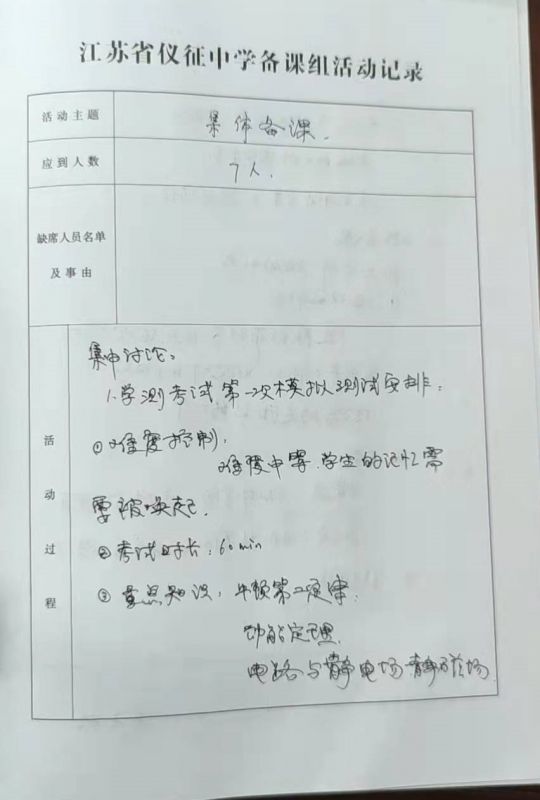 江苏省仪征中学备课组活动记录
活动主题
集体备课.
应到人数
7人.
缺席人员名单
及事由
活动过程
集中讨论:
1. 学测考试,第一次模拟测试安排:
①难度控制:
难度中等.学生的记忆需
要被唤起.
②考试时长:60min
③重点知识:牛顿第二定律.
动能定理.
电路与静电场.静磁场.